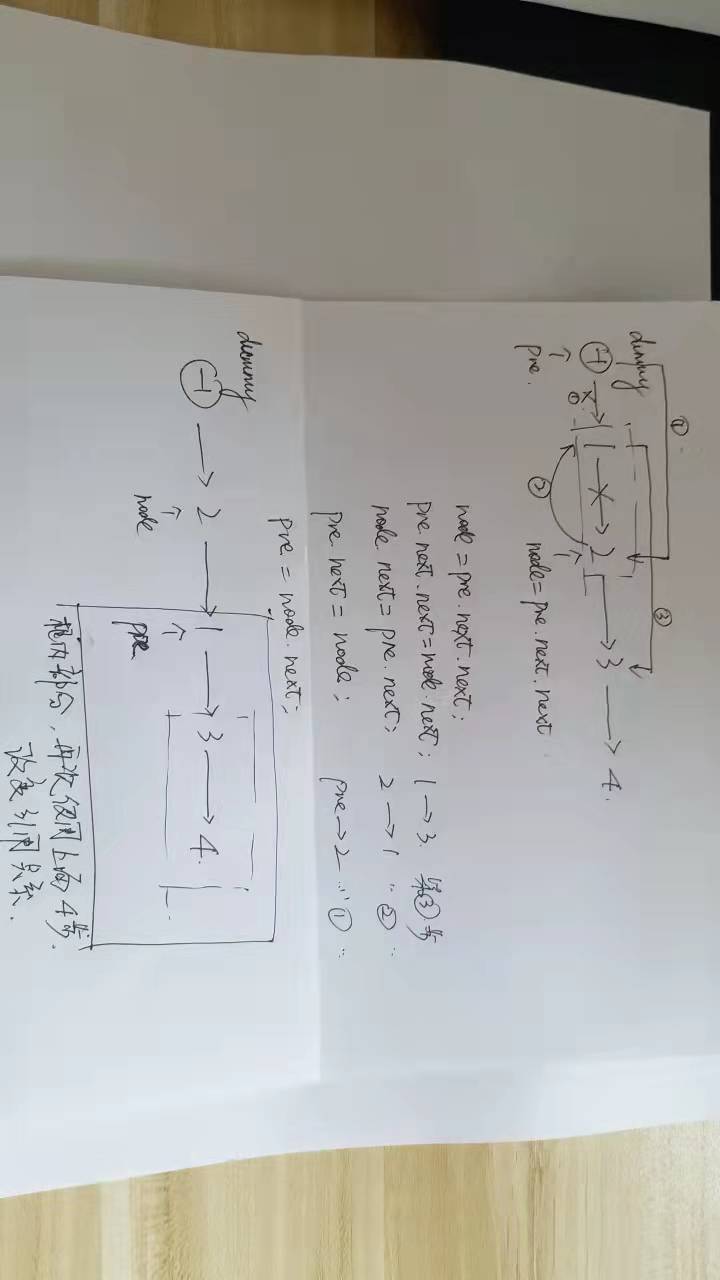 dummy ①
-1 ① 1 2 3 4.
pre. ② ③
node=pre.next.next
node=pre.next.next;
pre.next.next=node.next; 1→3. 第③步
node.next=pre.next; 2→1 ②
pre.next=node; pre→2 ①
pre=node.next;
dummy
-1 → 2 → 1 → 3 → 4.
node pre
框内部分,再次使用上面4步.
改变引用关系.